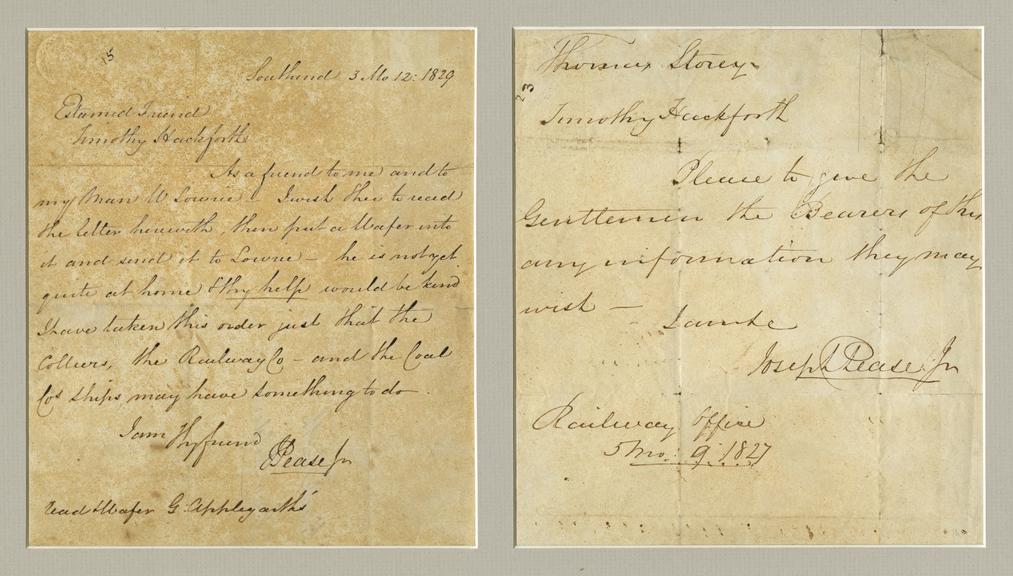 15
Southend 3 Mo 12: 1829
Esteemed Friend
Timothy Hackforth
As a friend to me and to
my Man W Lowrie - I wish thee to read
the letter herewith, then put a Wafer into
it and send it to Lowrie - he is not yet
quite at home & thy help would be kind
I have taken this order just that the
Colliers, the Railway Co - and the Coal
Cos ships may have something to do.
I am Thy friend
Pease Jr
read & Wafer G. Applegarth's
23
Thomas Storey
Timothy Hackforth
Please to give the
Gentlemen the Bearers of this
any information they may
wish -
I am &c
Joseph Pease Jr
Railway Office
5 Mo: 9. 1827